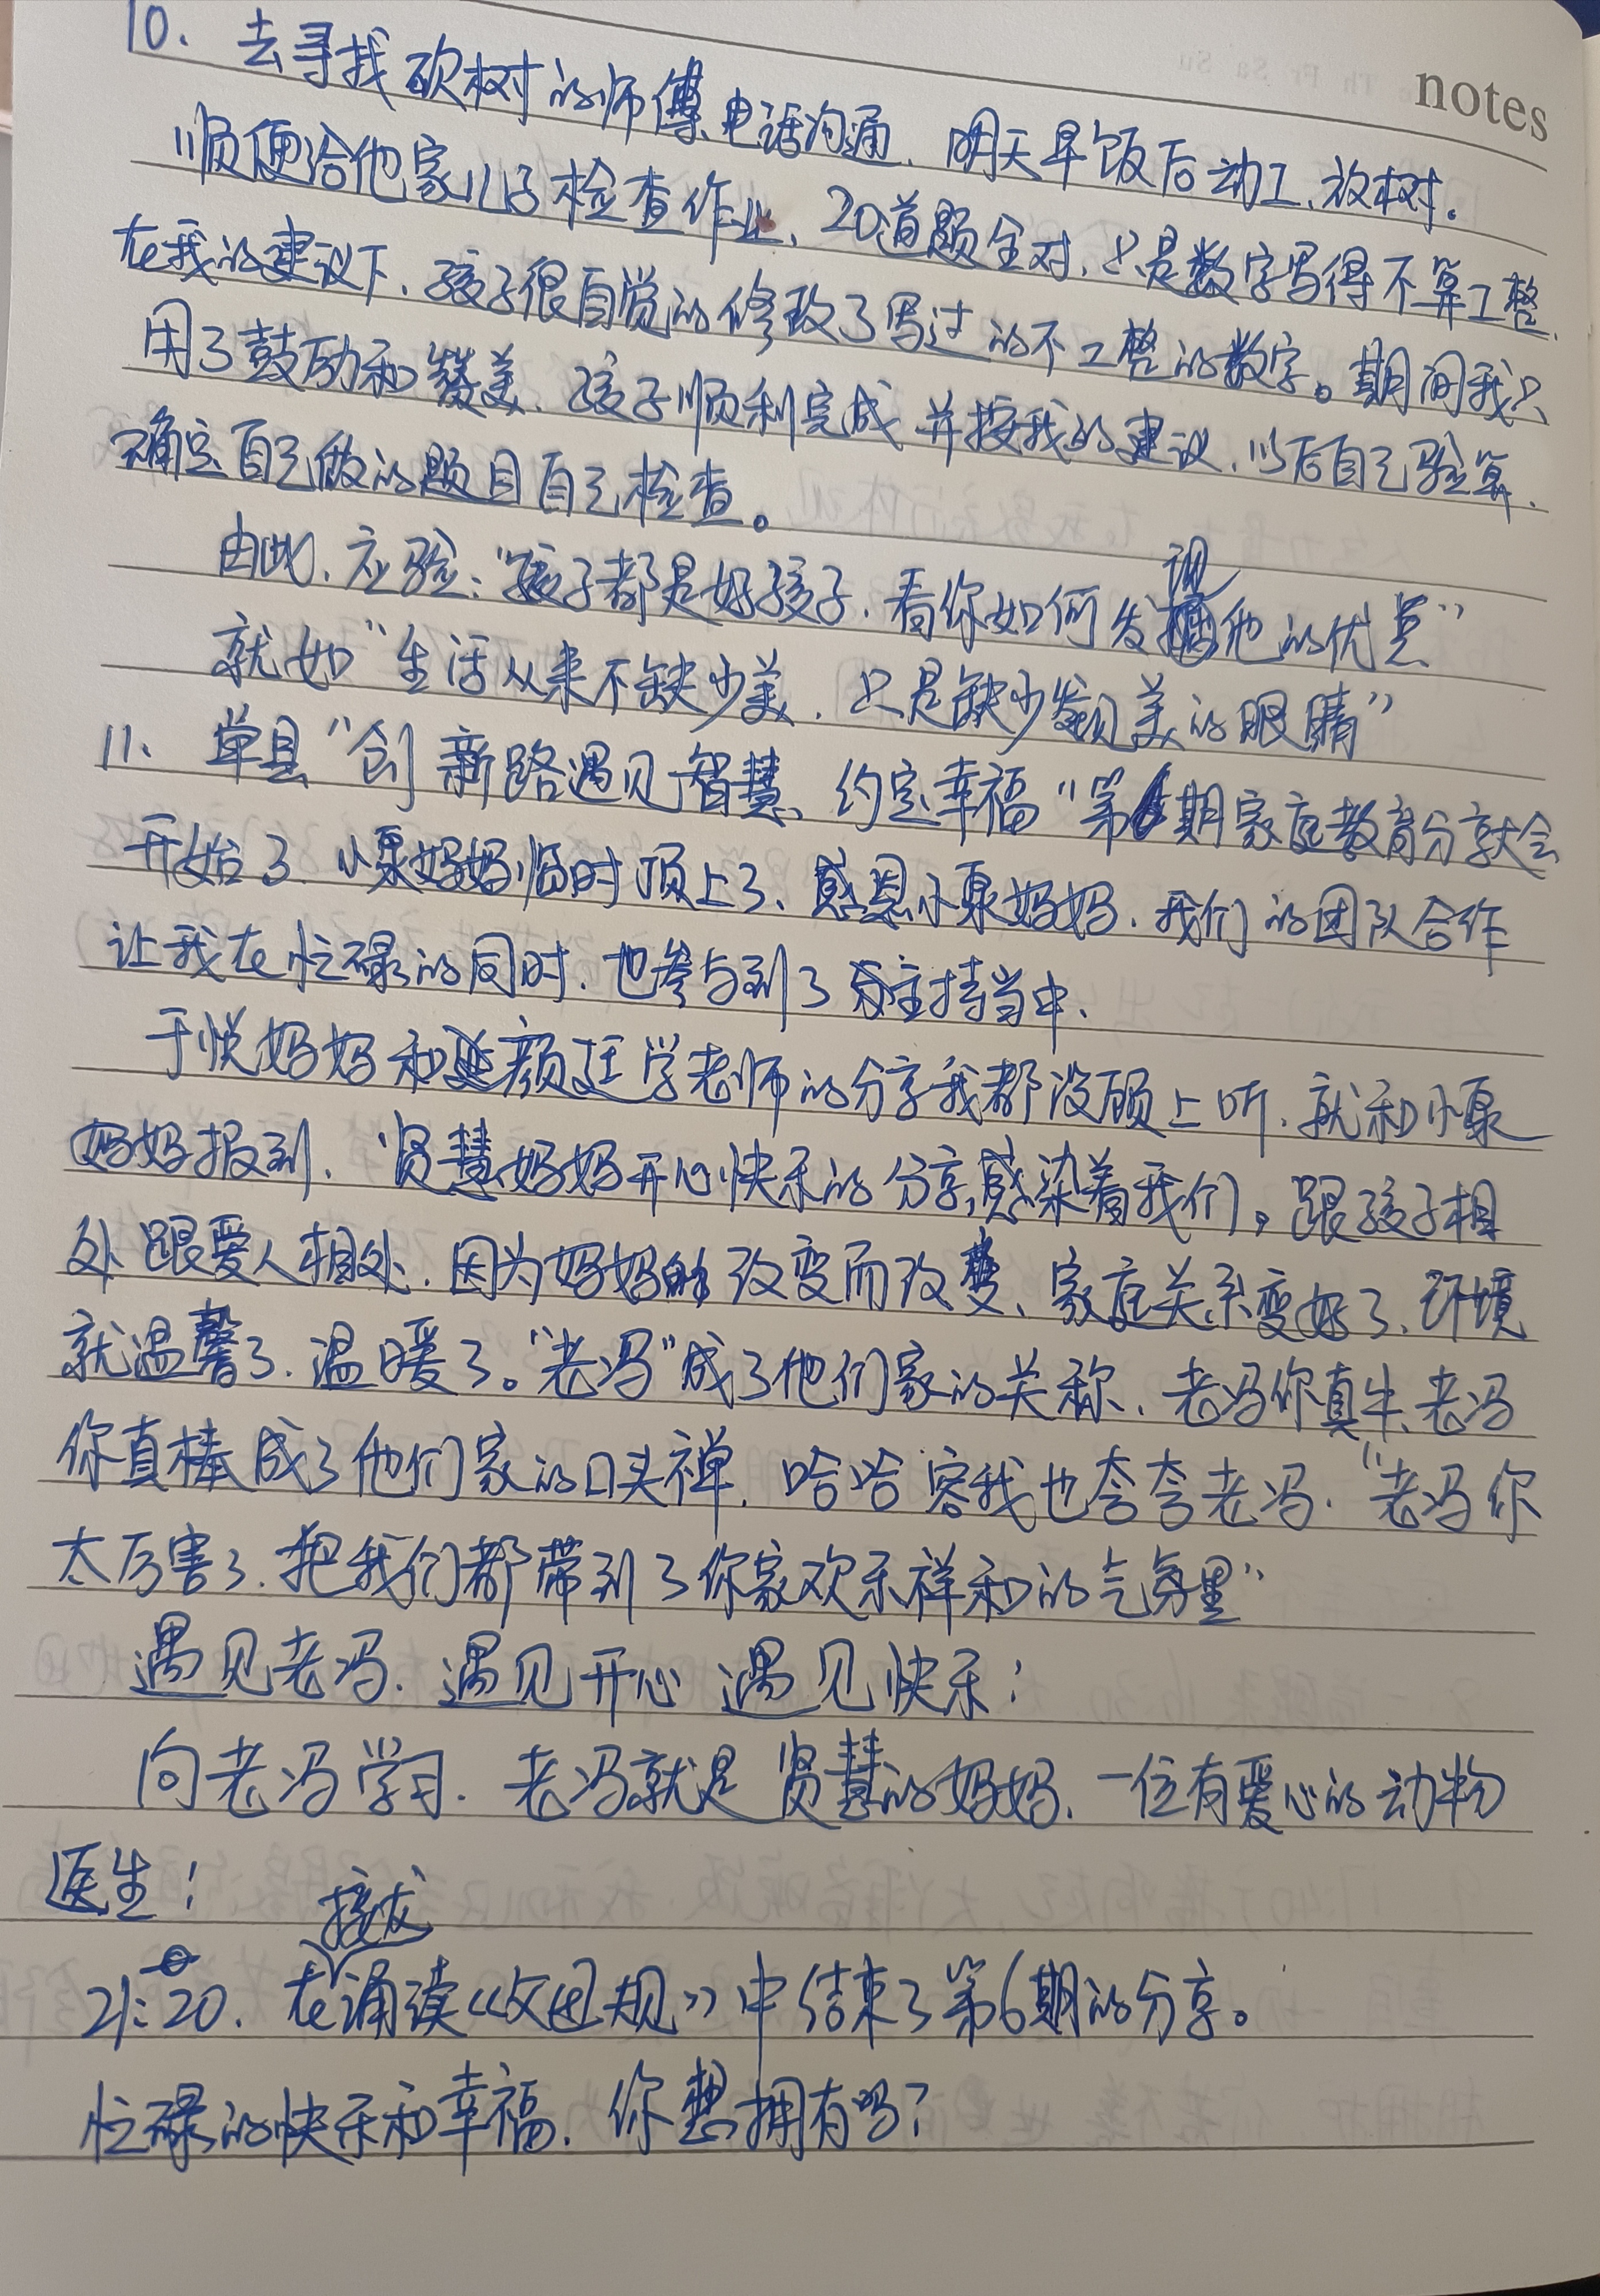 notes
10、去寻找砍树的师傅电话沟通、明天早饭后动工、放树。
顺便给他家儿子检查作业、20道题全对、只是数字写得不算工整、
在我的建议下、孩子很自觉的修改了写过的不工整的数字。期间我只
用了鼓励和赞美、孩子顺利完成并按我的建议、以后自己验算、
确定自己做的题目自己检查。
由此、应验:“孩子都是好孩子、看你如何发现他的优点”
就如“生活从来不缺少美、只是缺少发现美的眼睛”
11、单县“创新路遇见智慧、约定幸福“第6期家庭教育分享大会
开始了、小栗妈妈临时顶上了、感恩小栗妈妈、我们的团队合作
让我在忙碌的同时、也参与到了主持当中、
于悦妈妈和颜廷学老师的分享我都没顾上听、就和小栗
妈妈报到、贤慧妈妈开心快乐的分享感染着我们,跟孩子相
处跟爱人相处、因为妈妈的改变而改变、家庭关系变好了、环境
就温馨了、温暖了。“老冯”成了他们家的关称、老冯你真牛、老冯
你真棒成了他们家的口头禅、哈哈容我也夸夸老冯、“老冯你
太厉害了、把我们都带到了你家欢乐祥和的气氛里”
遇见老冯、遇见开心 遇见快乐!
向老冯学习、老冯就是贤慧的妈妈、一位有爱心的动物
医生!
21:20、在接龙诵读《父母规》中结束了第6期的分享。
忙碌的快乐和幸福、你想拥有吗?